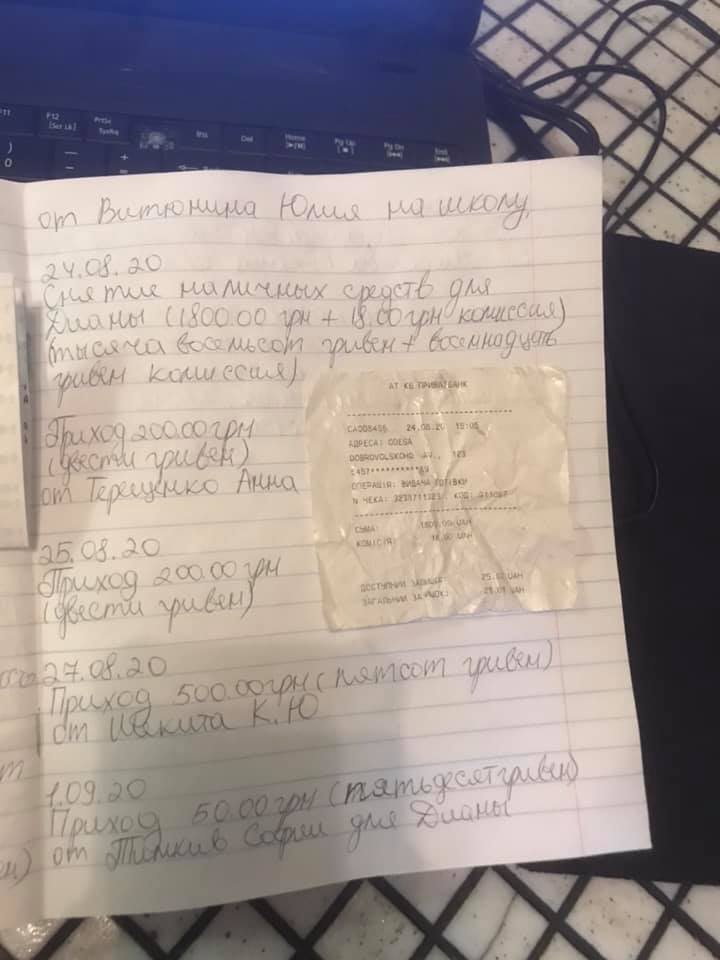 F12
[Scr Lk]
PrtSc
SysRq
Ins
Del
Home
Pg Up
Pg Dn
End
)
0
—
+
от Витюнина Юлия на школу.
24.08.20
Снятие наличных средств для
Дианы (1800.00 грн + 18.00 грн комиссия)
(тысяча восемьсот гривен + восемнадцать
гривен комиссия)
АТ КБ ПРИВАТБАНК
24.08.20
АДРЕСА: ODESA
DOBROVOLSKOHO AV., 123
ОПЕРАЦІЯ: ВИДАЧА ГОТІВКИ
N ЧЕКА: КОД:
СУМА: 1800.00 UAH
КОМІСІЯ: 18.00 UAH
ДОСТУПНИЙ ЗАЛИШОК: UAH
UAH
Приход 200.00 грн
(двести гривен)
от Терещенко Анна
25.08.20
Приход 200.00 грн
(двести гривен)
27.08.20
Приход 500.00 грн (пятсот гривен)
от К.Ю
1.09.20
Приход 50.00 грн (пятьдесят гривен)
от Тимкив Софии для Дианы